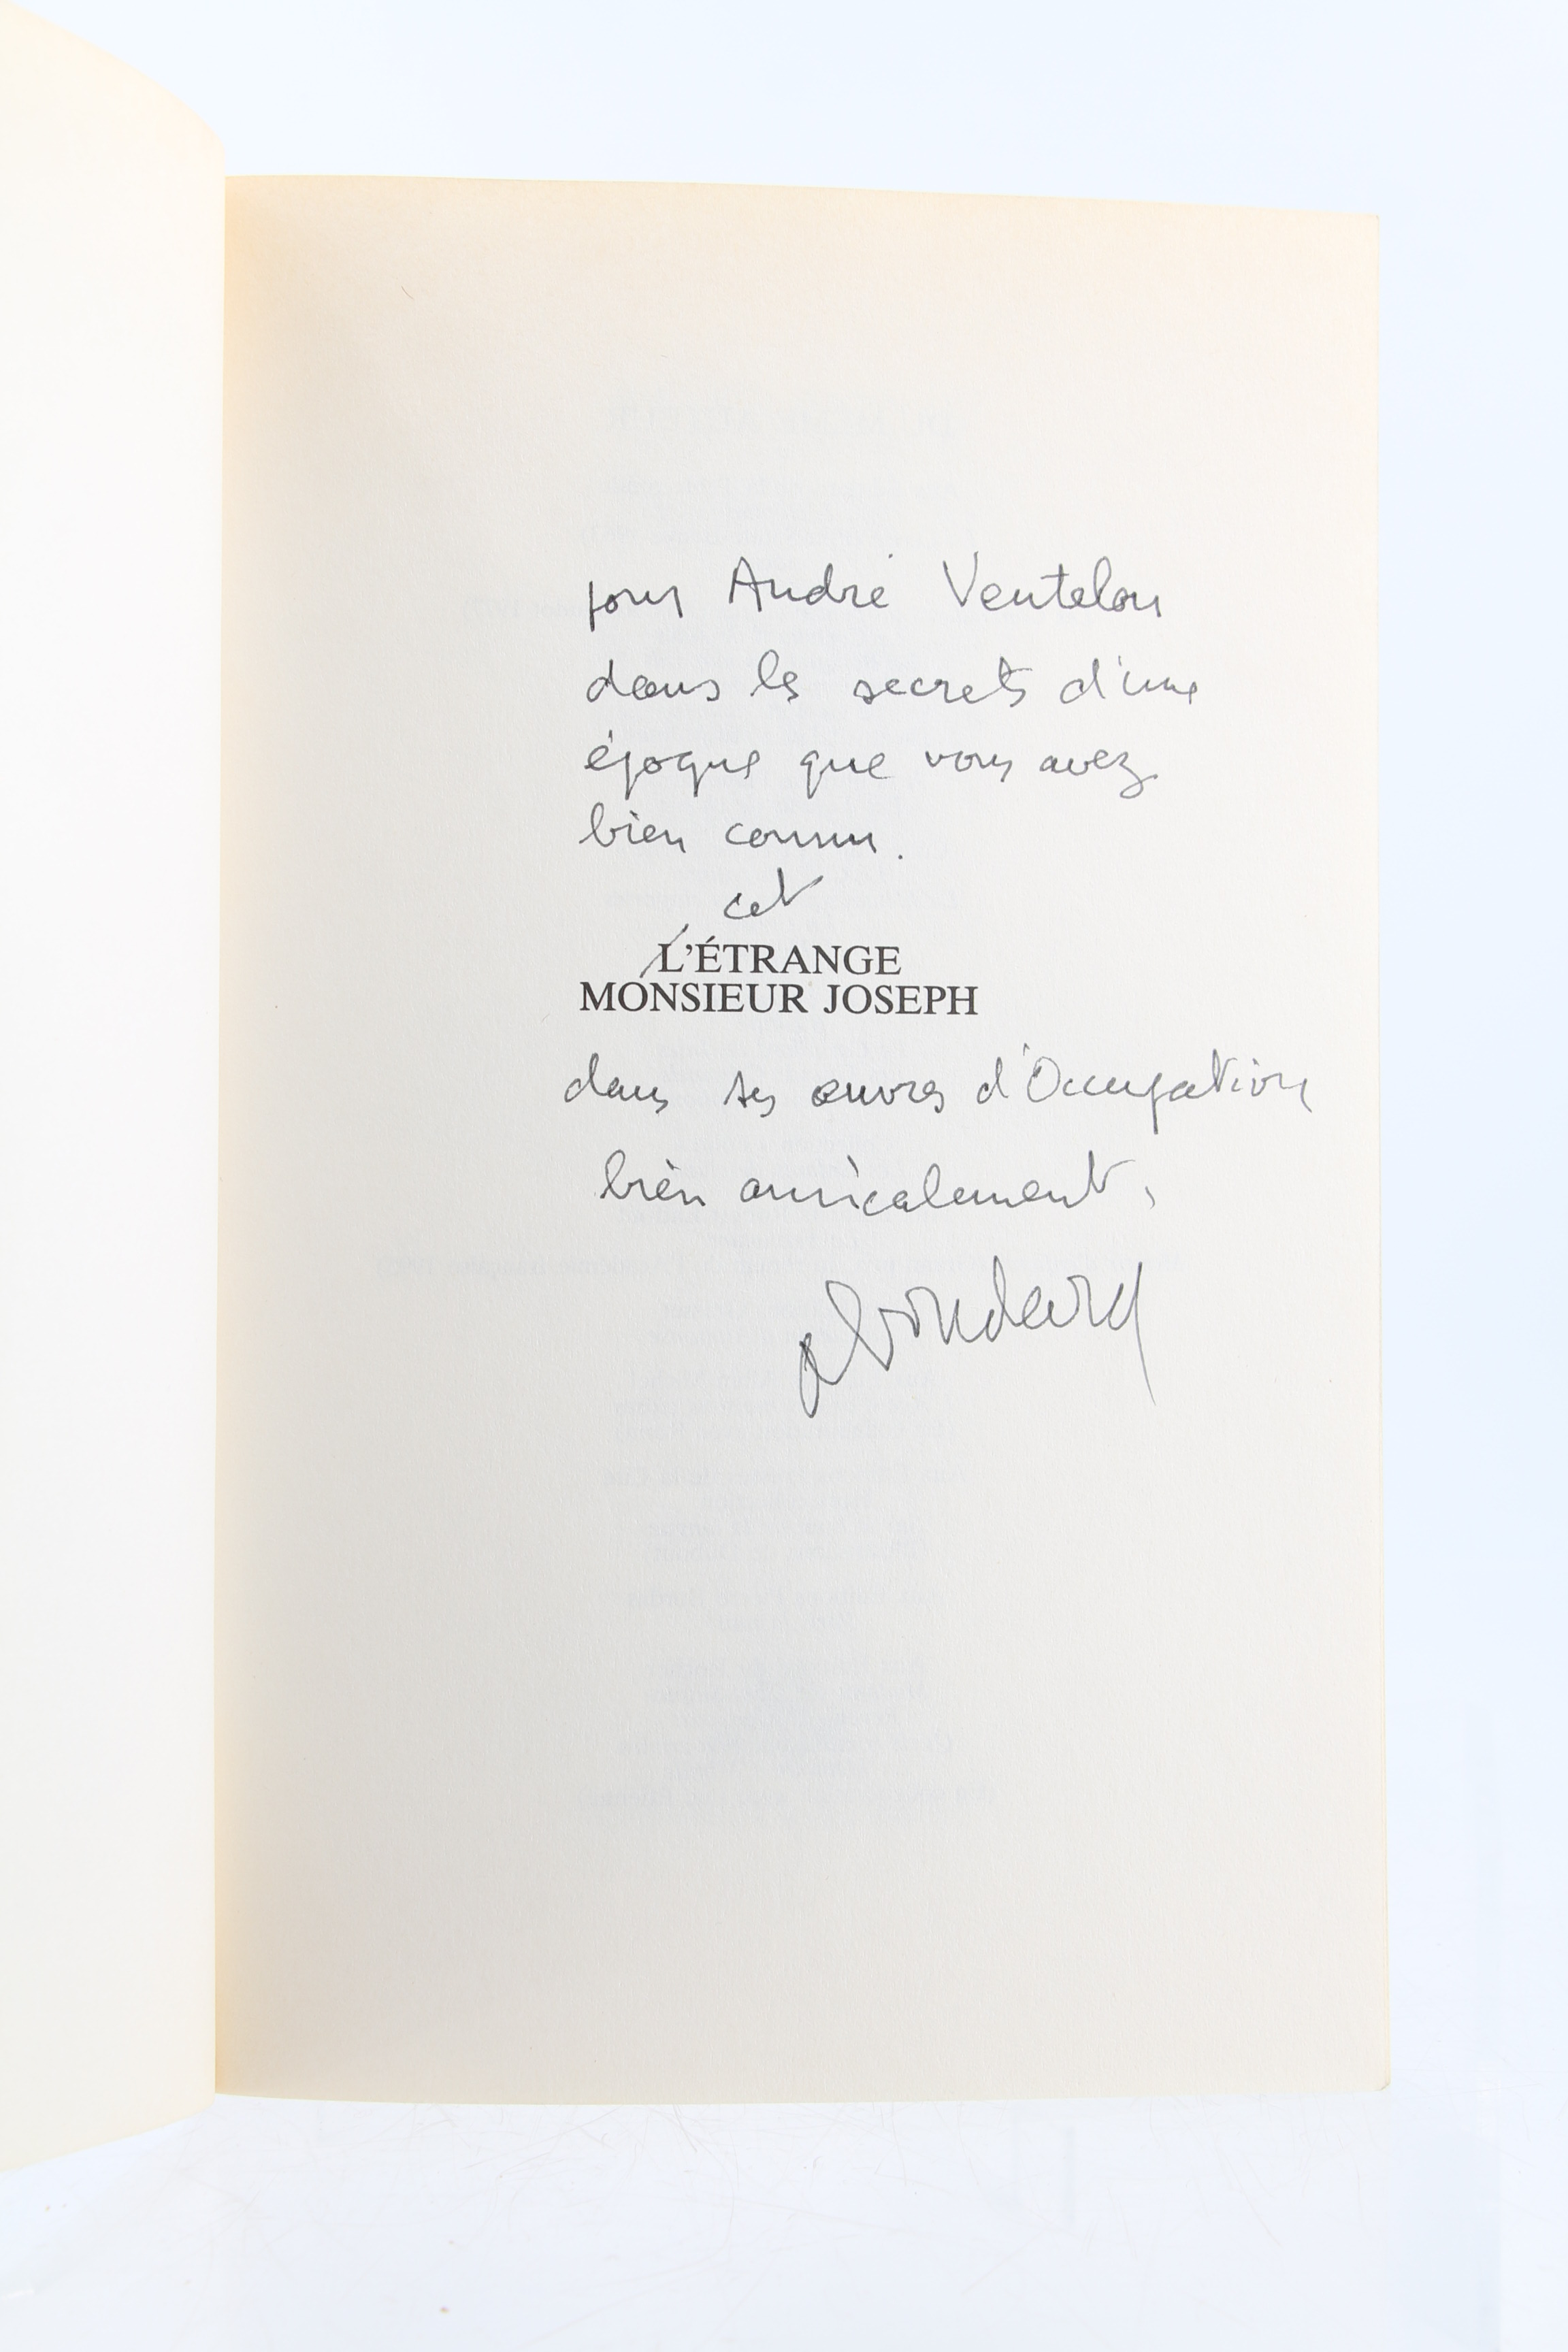 pour André Ventelou
dans les secrets d'une
époque que vous avez
bien connu.
cet
L'ÉTRANGE
MONSIEUR JOSEPH
dans ses œuvres d'Occupation
bien amicalement,